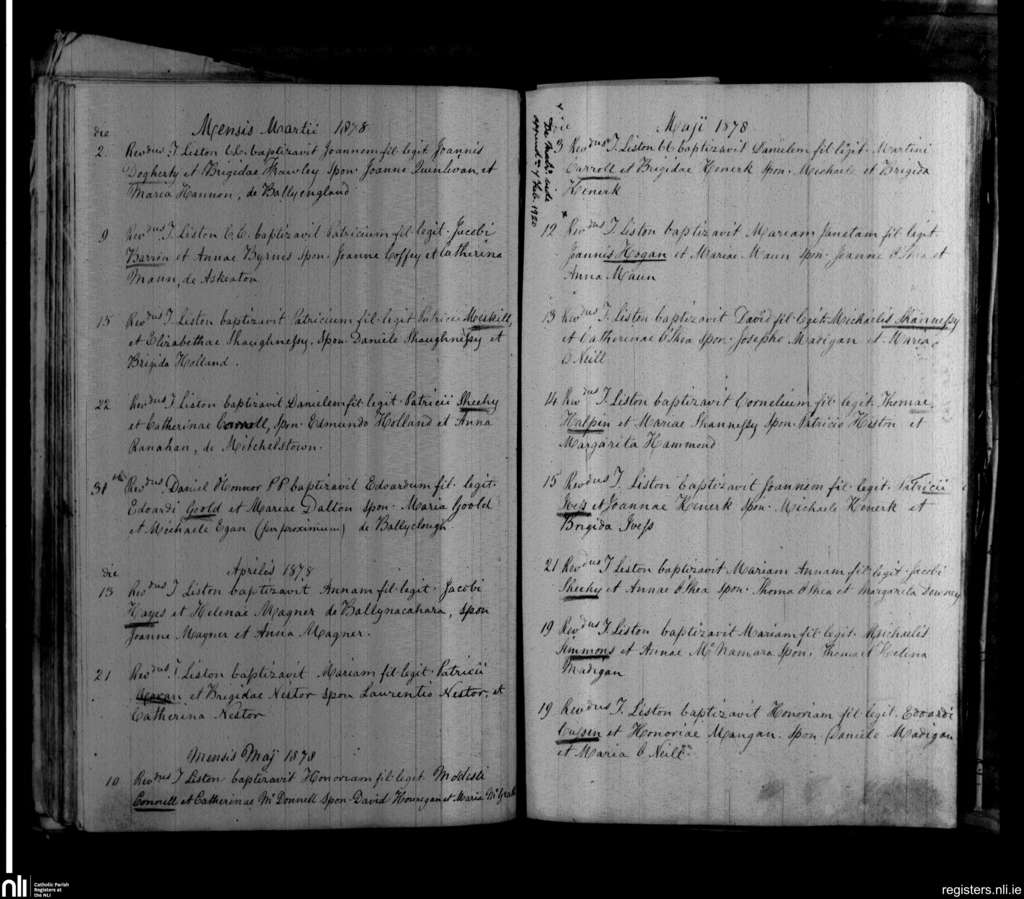 Mensis Martii 1878
die
2. Revdus T. Liston C.C. baptizavit Joannem fil. legit Joannis
Dogherty et Brigidae Frawley spon. Joanne Quinlivan, et
Maria Hannon, de Ballyengland
9 Revdus T. Liston C.C. baptizavit Patricium fil. legit. Jacobi
Barron et Annae Byrnes spon. Joanne Coffey et Catherina
Maun, de Askeaton.
15 Revdus T. Liston baptizavit Patricium fil. legit Patricii
et Elizabethae Shaughnessy. Spon. Daniele Shaughnessy et
Brigida Holland.
22 Revdus T. Liston baptizavit Danielem fil. legit. Patricii Sheehy
et Catherinae Carroll, spon. Edmundo Holland et Anna
Ranahan, de Mitchelstown.
31st Revdus. Daniel O'Connor P.P. baptizavit Edoardum fil. legit.
Edoardi Goold et Mariae Dalton spon. Maria Goold
et Michaele Egan (per proximum) de Ballyclough.
Aprilis 1878
die
13 Revdus T. Liston baptizavit Annam fil. legit. Jacobi
Hayes et Helenae Magner de Ballynacahara, spon
Joanne Magner et Anna Magner.
21 Revdus T. Liston baptizavit Mariam fil. legit. Patricii
et Brigidae Nestor spon Laurentio Nestor, et
Catherina Nestor
Mensis Maij 1878
10 Revdus T Liston baptizavit Honoriam fil. legit Modesti
Connell et Catherinae McDonnell spon. David Hounegan et Maria McGrath
Maji 1878
die
3 Revdus T. Liston CC baptizavit Danielem fil. legit. Martini
Carroll et Brigidae Henerk spon. Michaele et Brigida
Henerk
7 Feb. 1920
12 Revdus T. Liston baptizavit Mariam Janetam fil. legit
Joannis Hogan et Mariae Maun spon. Joanne O'Shea et
Anna Maun
13 Revdus T. Liston baptizavit David fil. legit. Michaelis Shannessy
et Catherinae O'Shea spon. Josepho Madigan et Maria
O'Neill
14 Revdus T. Liston baptizavit Cornelium fil. legit. Thomae
Halpin et Mariae Shannessy spon. Patricio Histon et
Margarita Hammond
15 Revdus T. Liston baptizavit Joannem fil. legit. Patricii
Ivess et Joannae Henerk spon. Michaele Henerk et
Brigida Ivess
21 Revdus T Liston baptizavit Mariam Annam fil. legit. Jacobi
Sheehy et Annae O'Shea spon. Thoma O'Shea et Margarita Downey
19 Revdus T. Liston baptizavit Mariam fil. legit. Michaelis
Simmons et Annae McNamara spon. Thoma et Helena
Madigan
19 Revdus T. Liston baptizavit Honoriam fil. legit. Edoardi
Cussen et Honoriae Mangan. spon. Daniele Madigan
et Maria O'Neill.
nli
Catholic Parish
Registers at
the NLI
registers.nli.ie